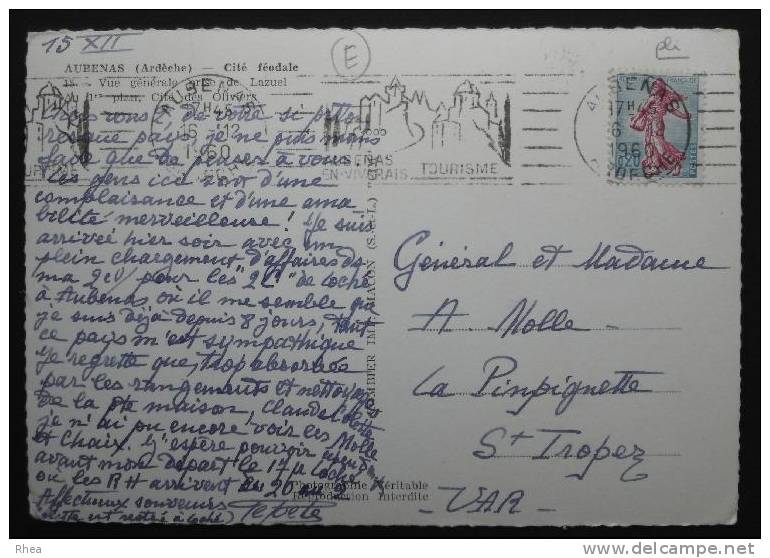 15 XII
E
pli
AUBENAS (Ardèche) — Cité féodale
15 - Vue générale prise de Lazuel
Au 1er plan, Cité des Oliviers
de vous si pitto
resque pays je ne puis mons
faire que de penser à vous
Les gens ici sont d'une
complaisance et d'une ama
bilité merveilleuse! Je suis
arrivée hier soir avec un
plein chargement d'affaires ds
ma 2cv pour les "2 C" de Loche
à Aubenas où il me semble que
je suis déjà depuis 8 jours, tant
ce pays m'est sympathique
Je regrette que, trop absorbée
par les rangements et nettoyages
de la pte maison, Claudel
je n'ai pu encore voir les Nolle
et Chaix. J'espère pouvoir
avant mon départ le 17 à Loche
où les RH arrivent au 20
Affectueux souvenirs
est restée à Loche)
AUBENAS
EN-VIVARAIS
TOURISME
AUBENAS
17H45
16-12
1960
ARDECHE
0,20
POSTES
COMBIER IMP. MACON (S.-&-L.)
Général et Madame
A Nolle
La Pinpignette
St Tropez
-VAR-
Photographie Véritable
Reproduction Interdite
Rhea
© delcampe.net